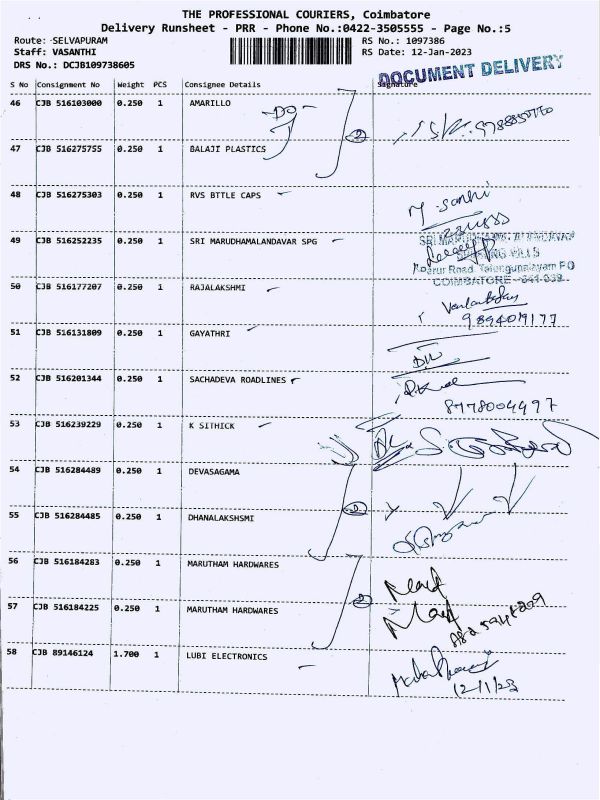 THE PROFESSIONAL COURIERS, Coimbatore
Delivery Runsheet - PRR - Phone No.:0422-3505555 - Page No.:5
Route: SELVAPURAM
RS No.: 1097386
Staff: VASANTHI
RS Date: 12-Jan-2023
DRS No.: DCJB109738605
DOCUMENT DELIVERY
S No Consignment No Weight PCS Consignee Details Signature
46 CJB 516103000 0.250 1 AMARILLO
-DO-
2
47 CJB 516275755 0.250 1 BALAJI PLASTICS
48 CJB 516275303 0.250 1 RVS BTTLE CAPS
49 CJB 516252235 0.250 1 SRI MARUDHAMALANDAVAR SPG
COIMBATORE - 641 039
50 CJB 516177207 0.250 1 RAJALAKSHMI
51 CJB 516131809 0.250 1 GAYATHRI
52 CJB 516201344 0.250 1 SACHADEVA ROADLINES
8778004497
53 CJB 516239229 0.250 1 K SITHICK
54 CJB 516284489 0.250 1 DEVASAGAMA
2
55 CJB 516284485 0.250 1 DHANALAKSHSMI
56 CJB 516184283 0.250 1 MARUTHAM HARDWARES
2
57 CJB 516184225 0.250 1 MARUTHAM HARDWARES
58 CJB 89146124 1.700 1 LUBI ELECTRONICS
12/1/23